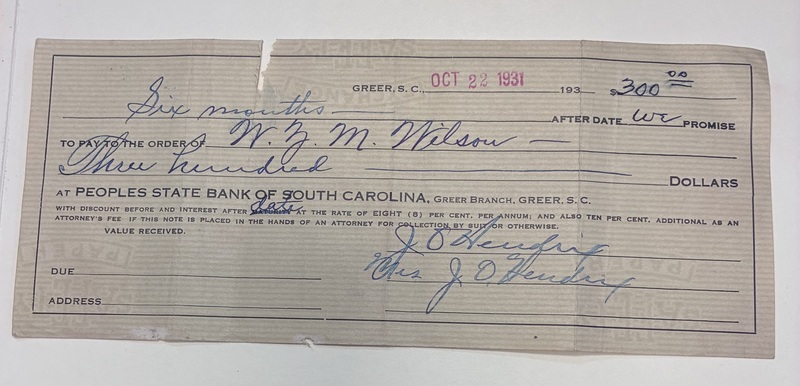 GREER, S. C., OCT 22 1931 193 $300 00
Six months
AFTER DATE we PROMISE
TO PAY TO THE ORDER OF W. Z. M. Wilson
Three hundred DOLLARS
AT PEOPLES STATE BANK OF SOUTH CAROLINA, GREER BRANCH, GREER, S. C.
WITH DISCOUNT BEFORE AND INTEREST AFTER date AT THE RATE OF EIGHT (8) PER CENT. PER ANNUM; AND ALSO TEN PER CENT. ADDITIONAL AS AN
ATTORNEY'S FEE IF THIS NOTE IS PLACED IN THE HANDS OF AN ATTORNEY FOR COLLECTION BY SUIT OR OTHERWISE.
VALUE RECEIVED.
J D Hendrix
Mrs J. D. Hendrix
DUE
ADDRESS